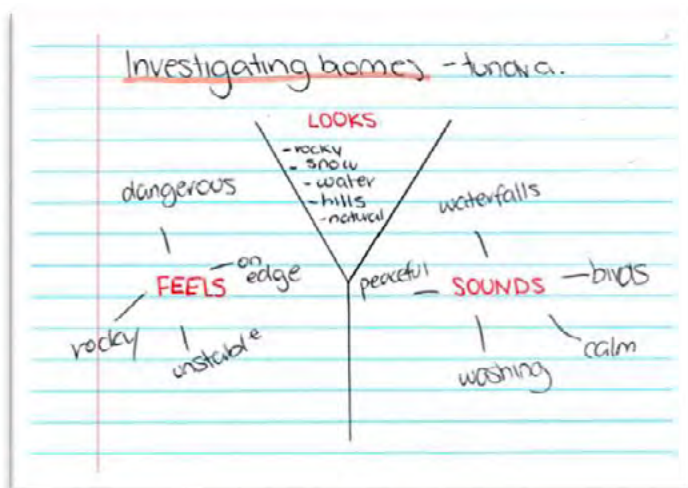 Investigating biomes - tundra.
LOOKS
- rocky
- snow
- water
- hills
- natural
dangerous
on
edge
FEELS
rocky
unstable
waterfalls
peaceful
SOUNDS
birds
calm
washing